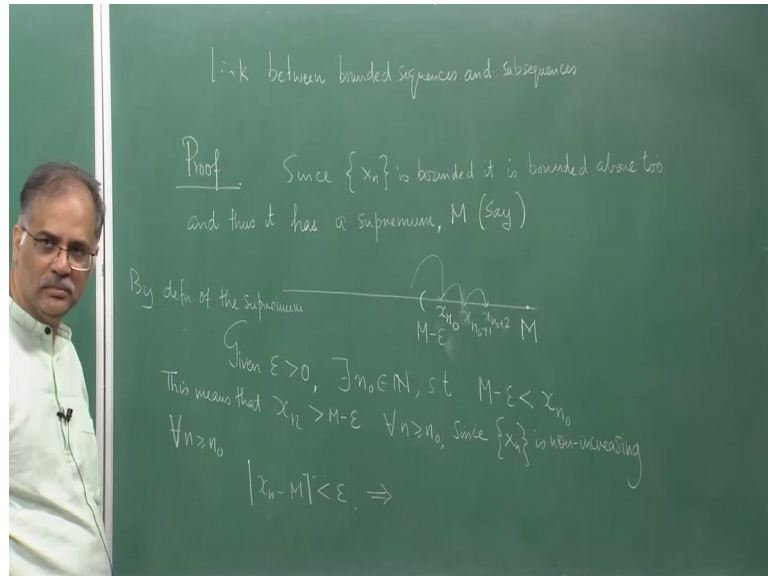 Link between bounded sequences and subsequences
Proof. Since {xₙ} is bounded it is bounded above too
and thus it has a supremum, M (Say)
By defn of the supremum
( xₙ₀ xₙ₀₊₁ xₙ₀₊₂
M-ε M
Given ε>0, ∃ n₀∈ℕ, st M-ε < xₙ₀
This means that xₙ > M-ε ∀n≥n₀, since {xₙ} is non-increasing
∀n≥n₀
|xₙ-M| < ε. ⇒